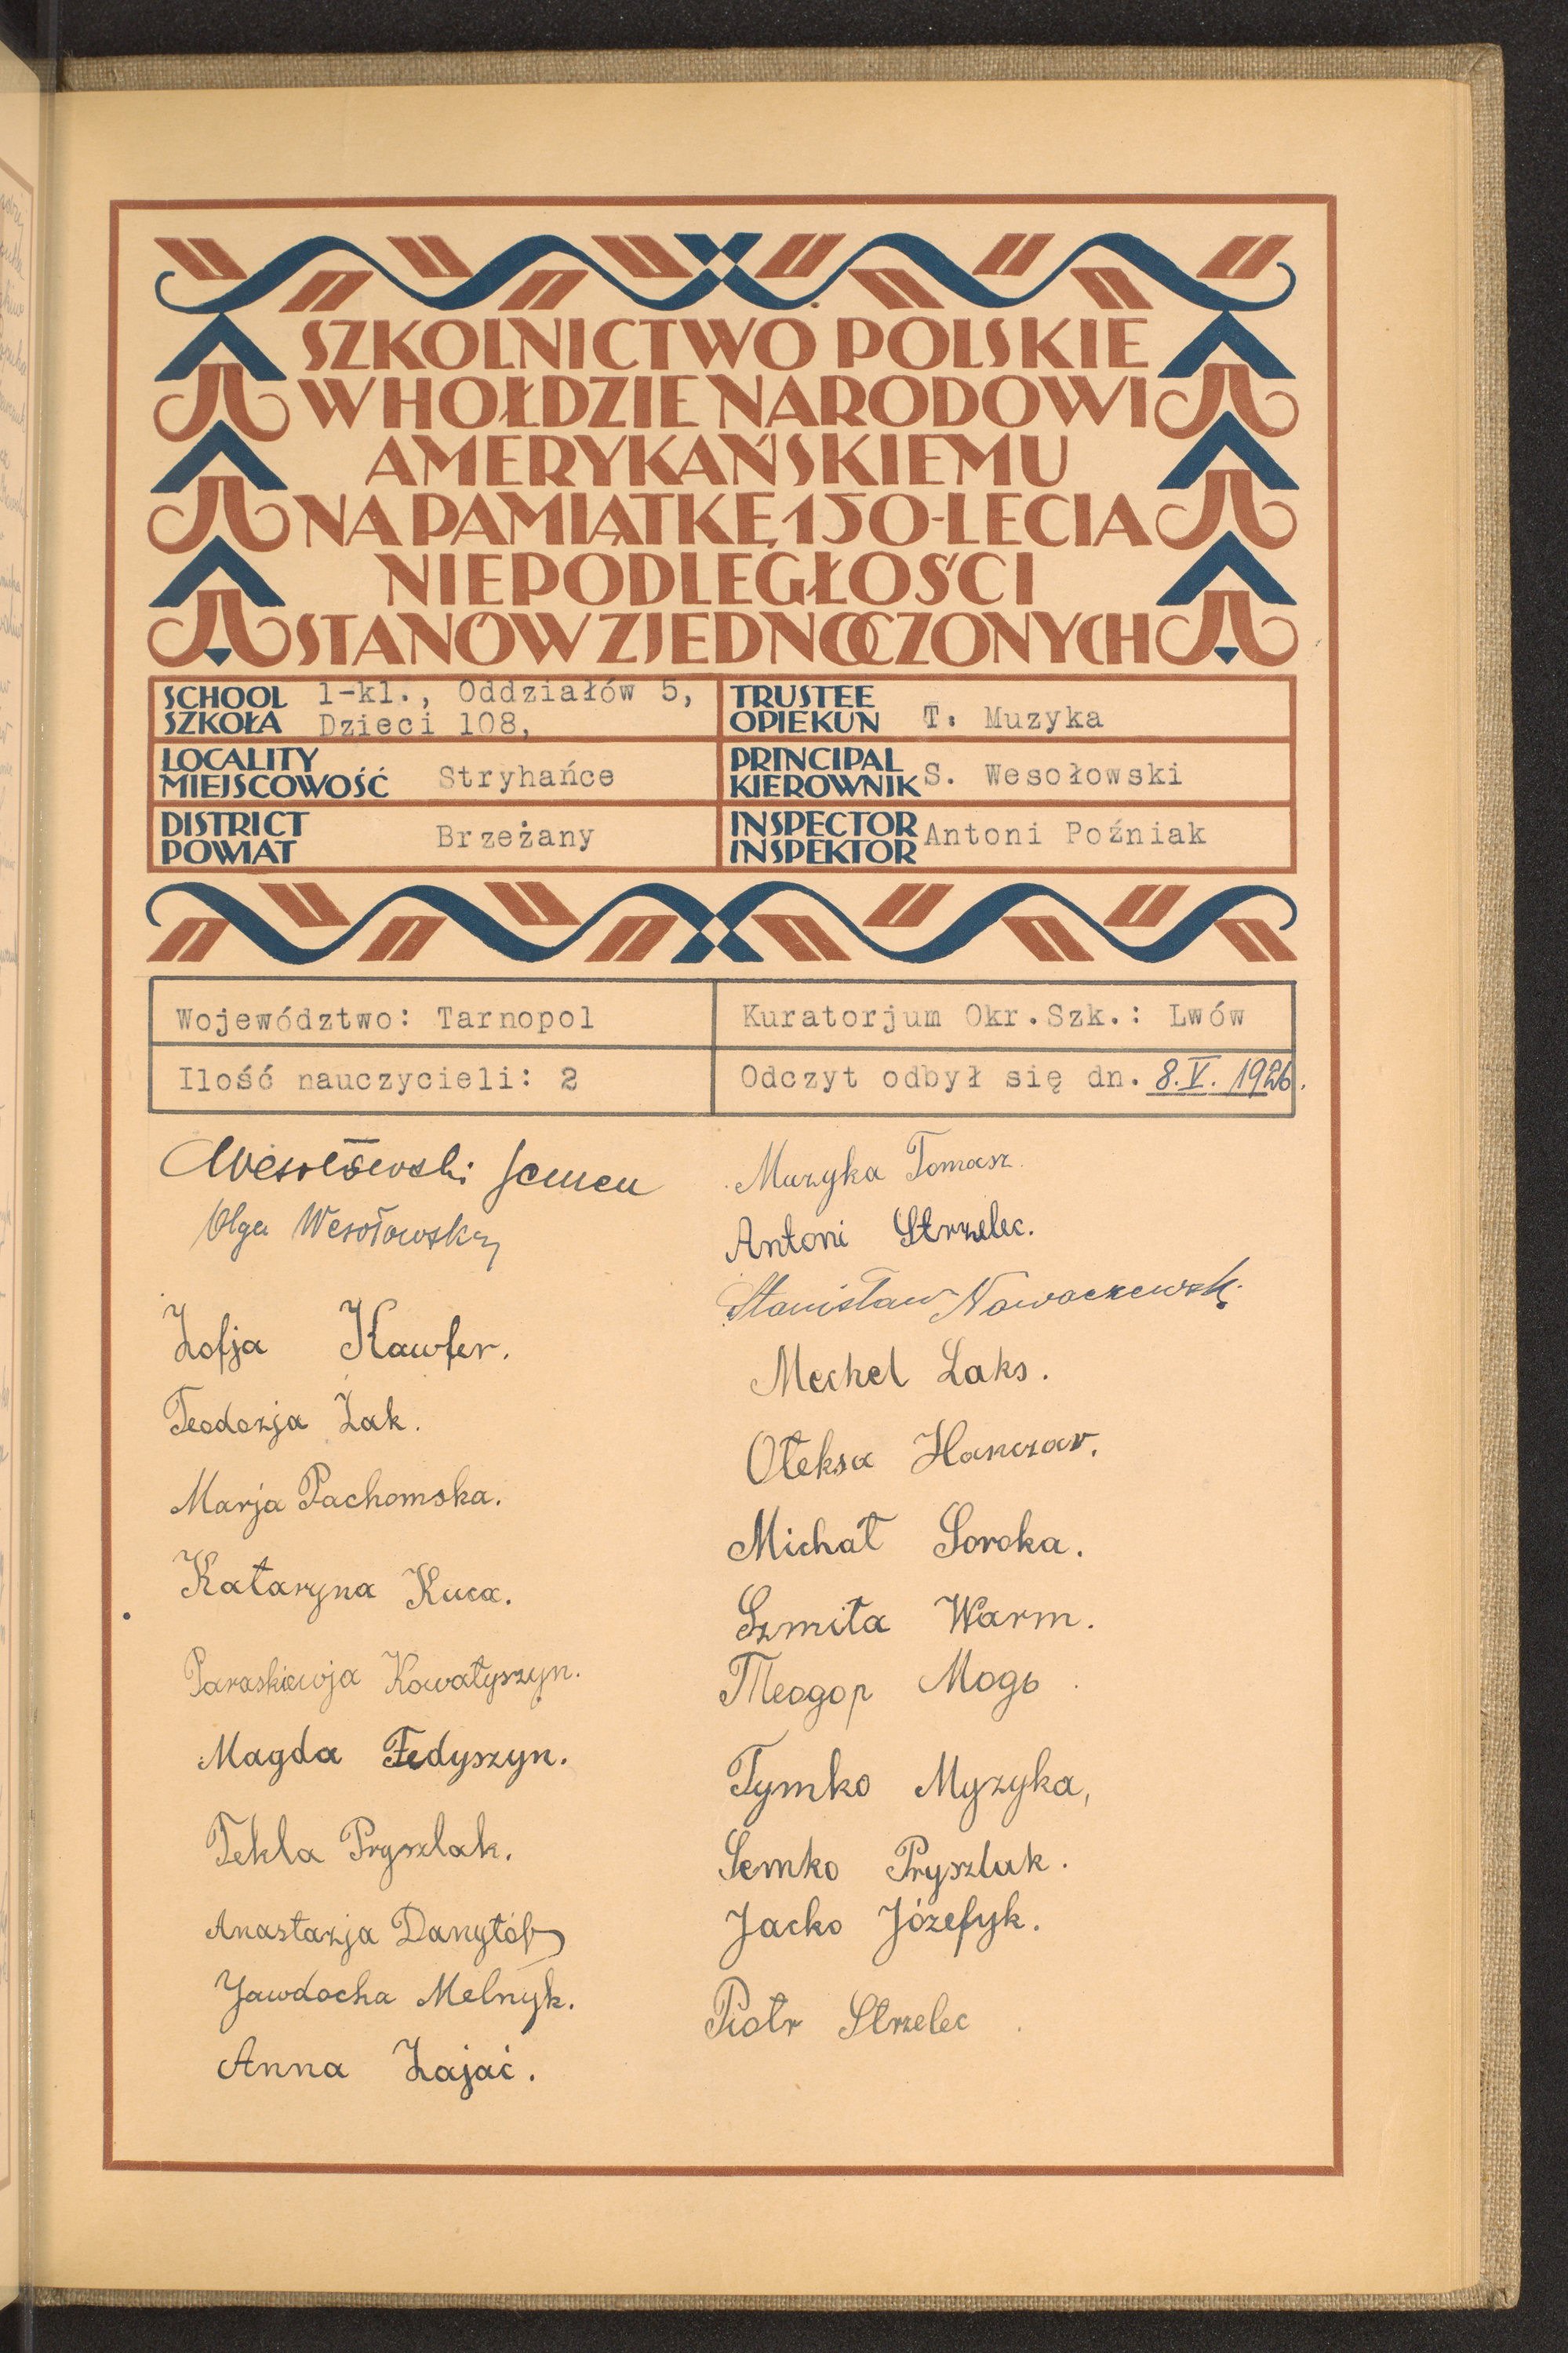 SZKOLNICTWO POLSKIE
W HOŁDZIE NARODOWI
AMERYKAŃSKIEMU
NA PAMIĄTKĘ 150-LECIA
NIEPODLEGŁOŚCI
STANÓW ZJEDNOCZONYCH
SCHOOL
SZKOŁA
1-kl., Oddziałów 5,
Dzieci 108,
TRUSTEE
OPIEKUN
T. Muzyka
LOCALITY
MIEJSCOWOŚĆ
Stryhańce
PRINCIPAL
KIEROWNIK
S. Wesołowski
DISTRICT
POWIAT
Brzeżany
INSPECTOR
INSPEKTOR
Antoni Poźniak
Województwo: Tarnopol
Kuratorjum Okr.Szk.: Lwów
Ilość nauczycieli: 2
Odczyt odbył się dn. 8.V. 1926.
Wesołowski Semen
Olga Wesołowska
Zofja Kawfer.
Teodozja Żak.
Marja Pachomska.
Kataryna Kuca.
Paraskiewja Kowałyszyn.
Magda Fedyszyn.
Tekla Pryszlak.
Anastazja Danyłów
Jawdocha Melnyk.
Anna Zajać.
Muzyka Tomasz.
Antoni Strzelec.
Stanisław Nowaczewski.
Mechel Laks.
Ołeksa Hanczar.
Michał Soroka.
Szmiła Warm.
Теодор Модь.
Tymko Myzyka,
Semko Pryszlak.
Jacko Józefyk.
Piotr Strzelec.